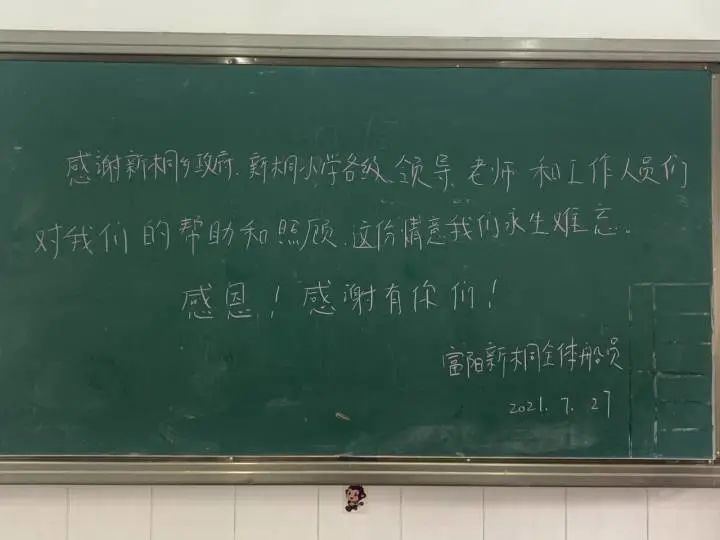 感谢新桐乡政府、新桐小学各级领导、老师和工作人员们
对我们的帮助和照顾、这份情意我们永生难忘。
感恩！感谢有你们！
富阳新桐全体船员
2021.7.27